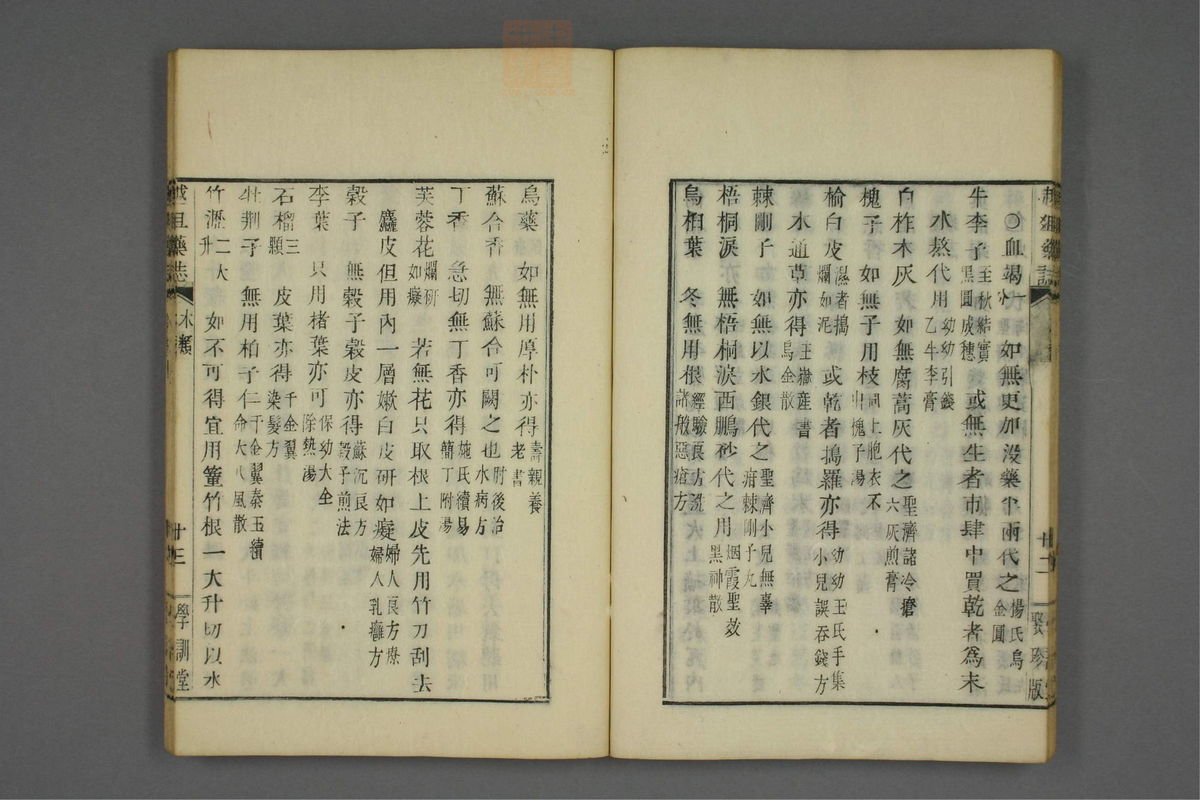 〇血竭少一 如無更加沒藥半兩代之楊氏烏金圓
牛李子至秋結實黑圓成穗 或無生者市肆中買乾者爲末
水熬代用幼幼引錢乙牛李膏
白柞木灰 如無腐蒿灰代之聖濟諸冷㿗六灰煎膏
槐子 如無子用枝同上胞衣不出槐子湯
榆白皮濕者搗爛如泥 或乾者搗羅亦得幼幼王氏手集小兒誤吞錢方
木通草亦得王嶽產書烏金散
棘剛子 如無以水銀代之聖濟小兒無辜疳棘剛子丸
梧桐淚 無梧桐淚西鵬砂代之用烟霞聖效黑神散
烏桕葉 冬無用根經驗良方洗諸般惡瘡方
烏藥 如無用厚朴亦得壽親養老書
蘇合香 無蘇合可闕之也肘後治水病方
丁香 急切無丁香亦得施氏續易簡丁附湯
芙蓉花爛研如癡 若無花只取根上皮先用竹刀刮去
麤皮但用內一層嫩白皮研如癡婦人良方療婦人乳癰方
榖子 無榖子榖皮亦得蘇沉良方榖子煎法
李葉 只用楮葉亦可保幼大全除熱湯
石榴三顆 皮葉亦得千金翼染髮方
牡荆子 無用柏子仁千金翼秦王續命大八風散
竹瀝二大升 如不可得宜用篁竹根一大升切以水
木類
廿三
學訓堂
廿二
聚珍版